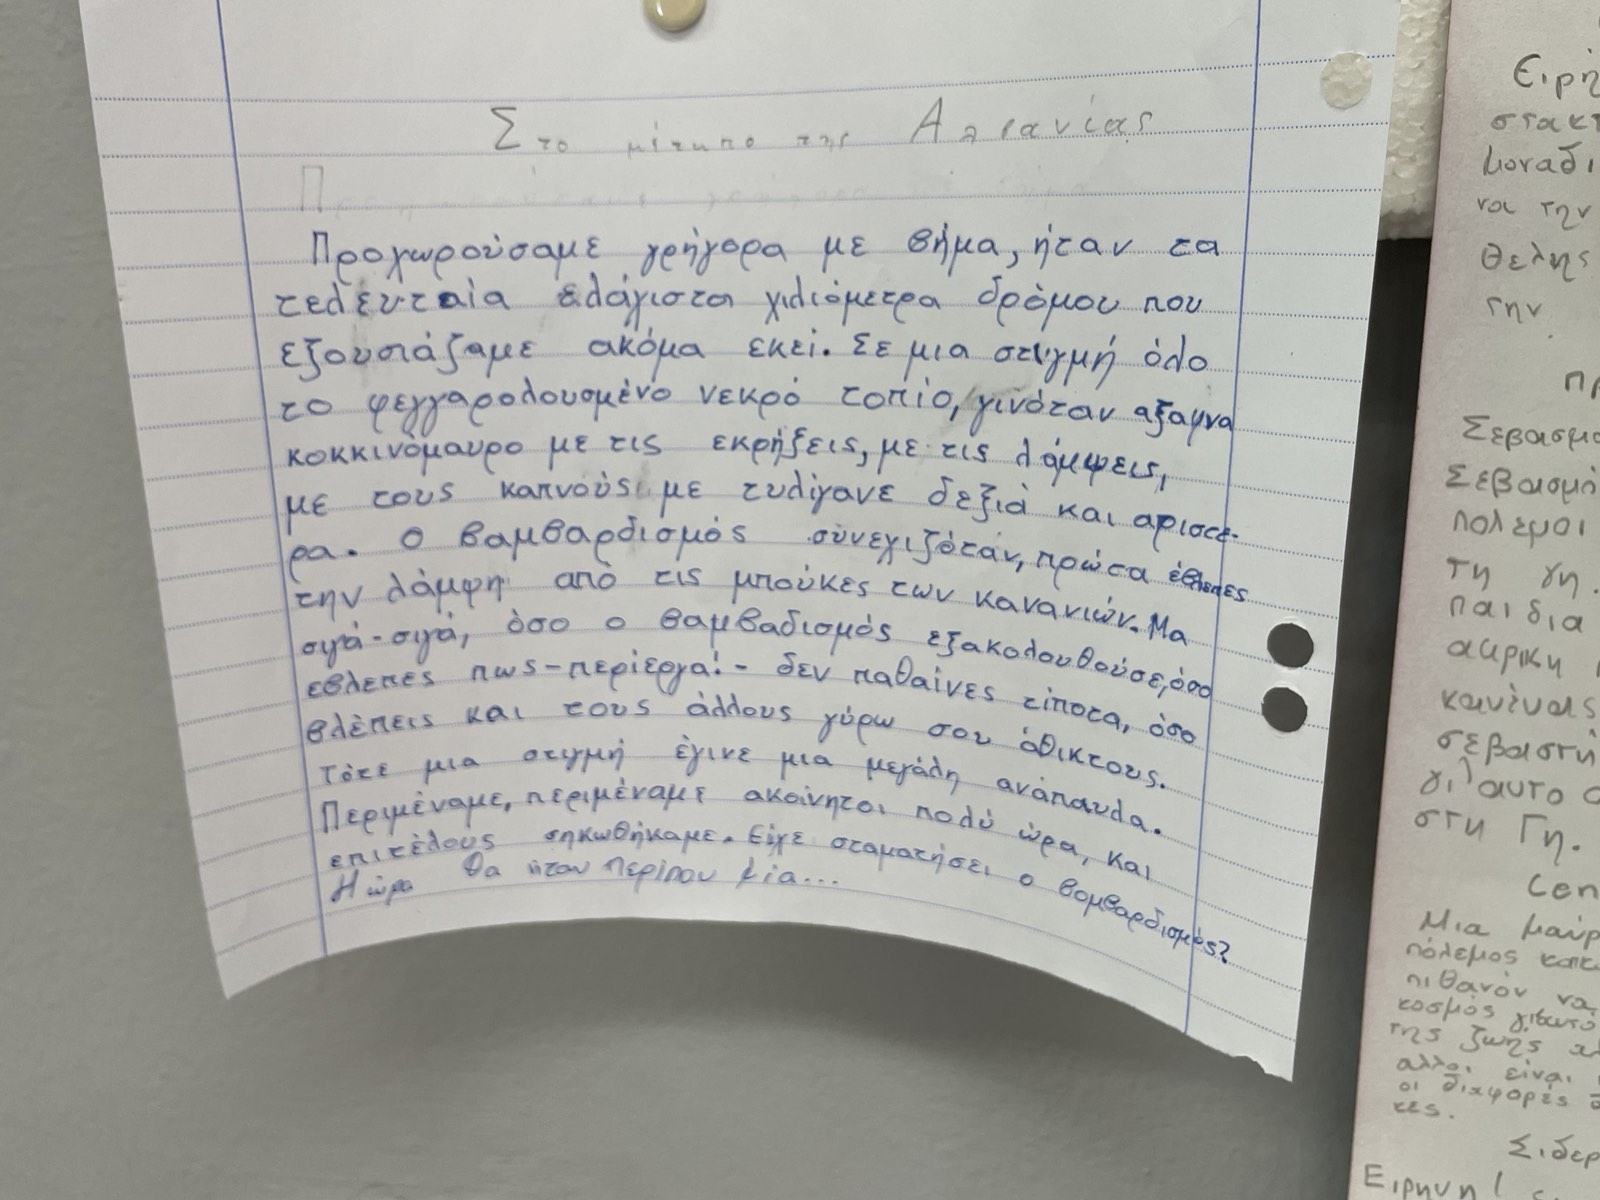 Στο μέτωπο της Αλβανίας
Προχωρούσαμε γρήγορα με βήμα, ήταν τα
τελευταία ελάχιστα χιλιόμετρα δρόμου που
εξουσιάζαμε ακόμα εκεί. Σε μια στιγμή όλο
το φεγγαρολουσμένο νεκρό τοπίο, γινόταν άξαφνα
κοκκινόμαυρο με τις εκρήξεις, με τις λάμψεις,
με τους καπνούς με τυλίγανε δεξιά και αριστε-
ρα. Ο βαμβαρδισμός συνεχιζόταν, πρώτα έβλεπες
την λάμψη από τις μπούκες των κανανιών. Μα
σιγά-σιγά, όσο ο βαμβαδισμός εξακολουθούσε, όσο
εβλεπες πως-περίεργα!- δεν παθαίνες τίποτα, όσο
βλέπεις και τους άλλους γύρω σου άθικτους.
Τότε μια στιγμή έγινε μια μεγάλη ανάπαυλα.
Περιμέναμε, περιμέναμε ακοίνητοι πολύ ώρα, και
επιτέλους σηκωθήκαμε. Είχε σταματήσει ο βομβαρδισμός?
Η ώρα θα ήταν περίπου μία...
Ειρή
στακτ
μοναδι
να την
θελης
την
πρ
Σεβασμο
Σεβασμό
πολεμοι
τη γη.
παιδια
ακρικη
κανένας
σεβαστή
γι'αυτο
στη Γη.
Cen
Μια μαύρ
πόλεμος κακ
πιθανόν να
κοσμός
της ζωής
αλλοι είναι
οι διαφορές
τες.
Σιδερ
Ειρηνη!